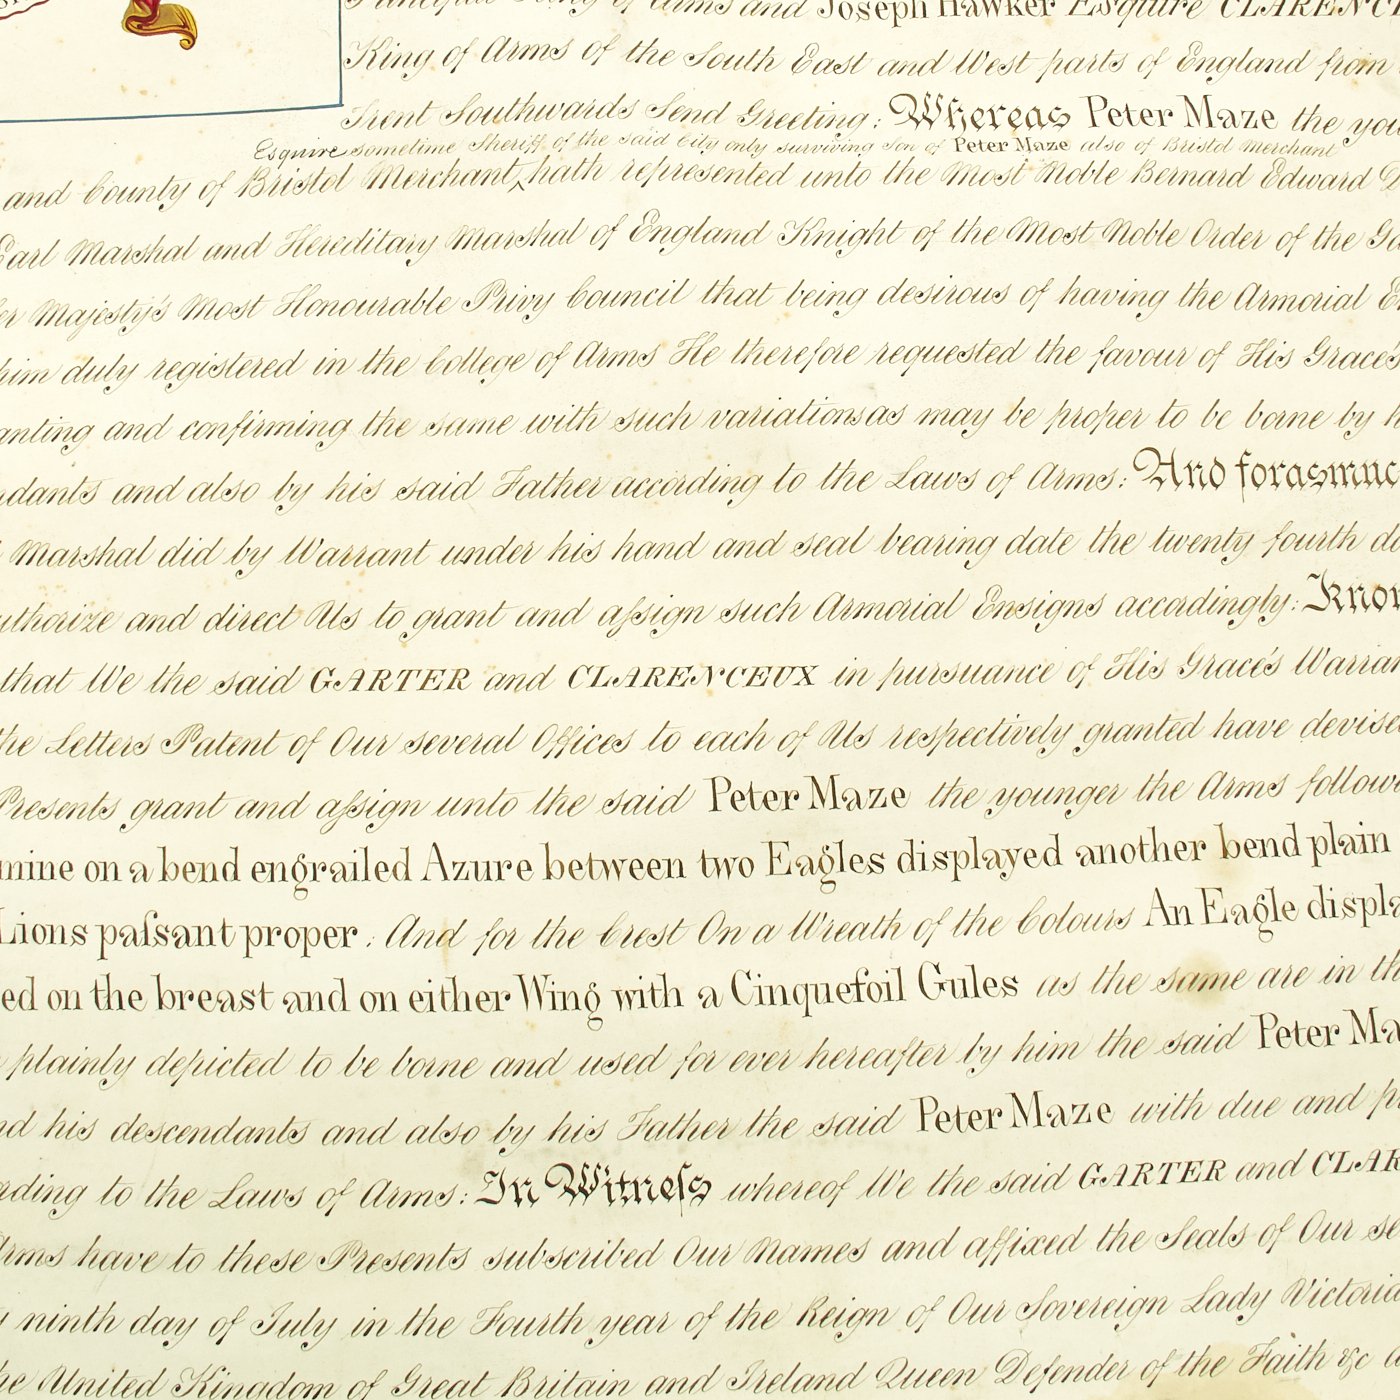 Principal King of Arms and Joseph Hawker Esquire CLARENCE
King of Arms of the South East and West parts of England from
Trent Southwards Send Greeting: Whereas Peter Maze the you
Esquire sometime Sheriff of the said City only surviving Son of Peter Maze also of Bristol Merchant
and County of Bristol Merchant‸hath represented unto the Most Noble Bernard Edward D
Earl Marshal and Hereditary Marshal of England Knight of the Most Noble Order of the Ga
er Majesty's Most Honourable Privy Council that being desirous of having the Armorial En
him duly registered in the College of Arms He therefore requested the favour of His Grace's
anting and confirming the same with such variations as may be proper to be borne by h
ndants and also by his said Father according to the Laws of Arms: And forasmuc
Marshal did by Warrant under his hand and seal bearing date the twenty fourth da
uthorize and direct Us to grant and aſsign such Armorial Ensigns accordingly: Know
that We the said GARTER and CLARENCEUX in pursuance of His Grace's Warran
the Letters Patent of Our several Offices to each of Us respectively granted have devise
Presents grant and aſsign unto the said Peter Maze the younger the Arms followi
mine on a bend engrailed Azure between two Eagles displayed another bend plain
Lions paſsant proper: And for the Crest On a Wreath of the Colours An Eagle displa
ed on the breast and on either Wing with a Cinquefoil Gules as the same are in th
plainly depicted to be borne and used for ever hereafter by him the said Peter Ma
nd his descendants and also by his Father the said Peter Maze with due and p
rding to the Laws of Arms: In Witneſs whereof We the said GARTER and CLAR
Arms have to these Presents subscribed Our Names and affixed the Seals of Our se
y ninth day of July in the Fourth year of the Reign of Our Sovereign Lady Victoria
he United Kingdom of Great Britain and Ireland Queen Defender of the Faith &c a